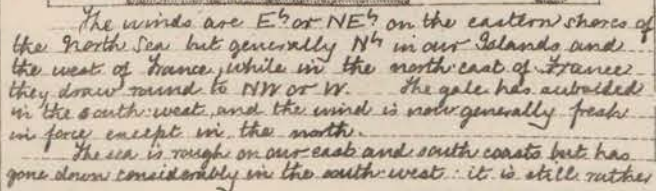 The winds are Eʰ or NEʰ on the eastern shores of
the North Sea but generally Nʰ in our Islands and
the west of France, while in the north-east of France
they draw round to NW or W. The gale has subsided
in the south-west, and the wind is now generally fresh
in force except in the north.
The sea is rough on our east and south coasts but has
gone down considerably in the south-west: it is still rather